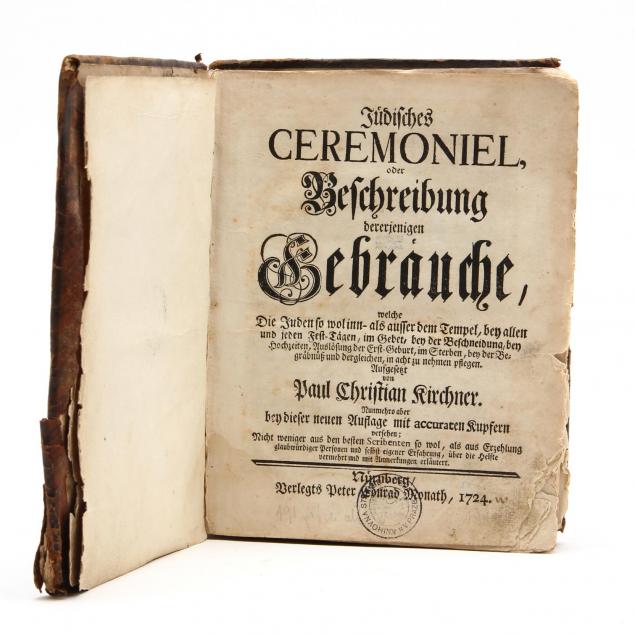 Jüdisches
CEREMONIEL,
oder
Beschreibung
dererjenigen
Gebräuche,
welche
Die Juden so wol inn- als ausser dem Tempel, bey allen
und jeden Fest-Tägen, im Gebet, bey der Beschneidung, bey
Hochzeiten, Auslösung der Erst-Geburt, im Sterben, bey der Be-
gräbnüß und dergleichen, in acht zu nehmen pflegen.
Aufgesetzt
von
Paul Christian Kirchner.
Nunmehro aber
bey dieser neuen Auflage mit accuraten Kupfern
versehen;
Nicht weniger aus den besten Scribenten so wol, als aus Erzehlung
glaubwürdiger Personen und selbst eigener Erfahrung, über die Helfte
vermehrt und mit Anmerkungen erläutert.
Nürnberg/
Verlegts Peter Conrad Monath, 1724.
KNIHOVNA